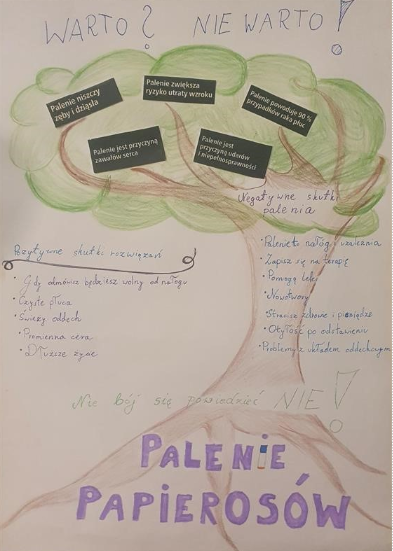 WARTO? NIE WARTO!
Palenie niszczy
zęby i dziąsła
Palenie zwiększa
ryzyko utraty wzroku
Palenie powoduje 90 %
przypadków raka płuc
Palenie jest przyczyną
zawałów serca
Palenie jest
przyczyną udarów
i niepełnosprawności
Negatywne skutki
palenia
Pozytywne skutki rozwiązań
Gdy odmówisz będziesz wolny od nałogu
• Czyste płuca
• Świeży oddech
• Promienna cera
• Dłuższe życie
• Palenie to nałóg
• Zapisz się na terapię
• Pomogą leki
• Nowotwory
Stracisz zdrowie i pieniądze
• Otyłość po odstawieniu
• Problemy z układem oddechowym
Nie bój się powiedzieć NIE!
PALENIE
PAPIEROSÓW